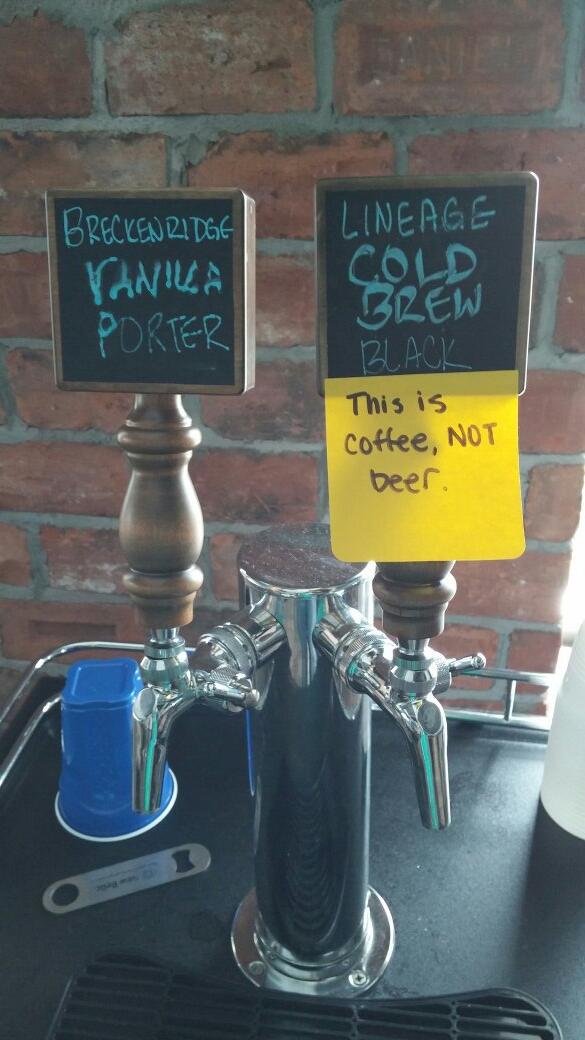 BRECKENRIDGE
VANILLA
PORTER
LINEAGE
COLD
BREW
BLACK
This is
coffee, NOT
beer.
New Relic